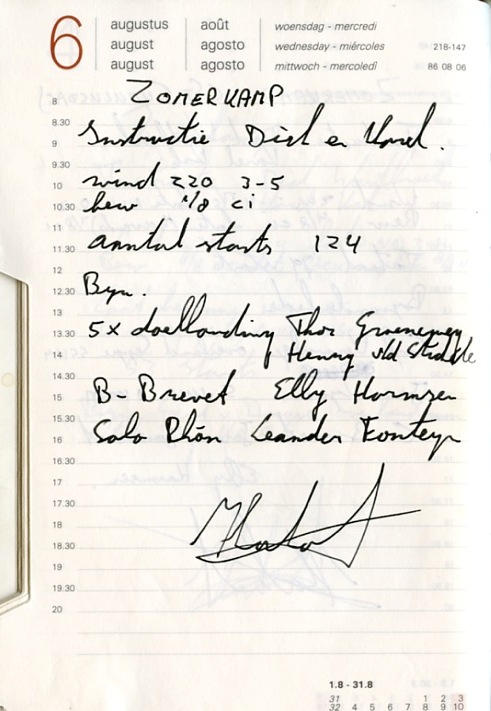 6
augustus août woensdag - mercredi
august agosto wednesday - miércoles 218-147
august agosto mittwoch - mercoledì 86 08 06
8 ZOMERKAMP
8.30
9 Instructie Dick en Karel.
9.30
10 wind 220 3-5
10.30 bew 1/8 ci
11
11.30 aantal starts 124
12
12.30 Byz.
13
13.30 5x doellanding Thor Groeneweg
14 Henny vld
14.30
15 B-Brevet Elly Harmsen
15.30
16 Solo Rhön Leander Fonteyn
16.30
17
17.30
18
18.30
19
19.30
20
1.8 - 31.8
31 1 2 3
32 4 5 6 7 8 9 10